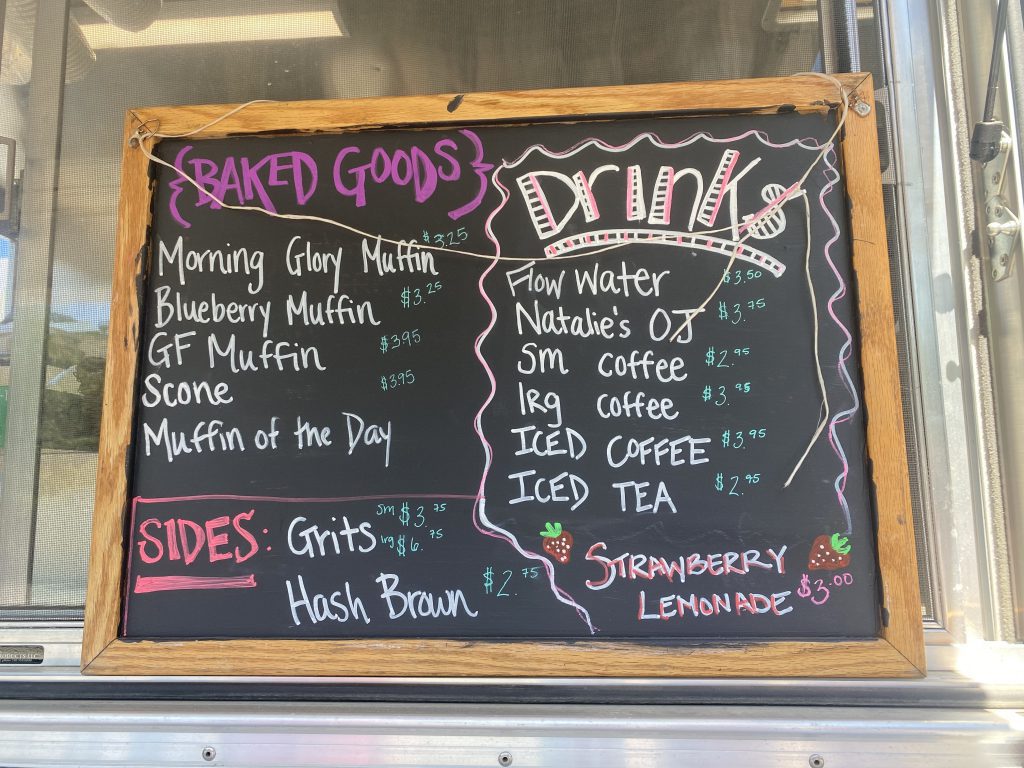 {BAKED GOODS}
Morning Glory Muffin $3.25
Blueberry Muffin $3.25
GF Muffin $3.95
Scone $3.95
Muffin of the Day
SIDES: Grits sm $3.75
lrg $6.75
Hash Brown $2.75
Drinks
Flow Water $3.50
Natalie's OJ $3.75
Sm coffee $2.95
lRg coffee $3.95
ICED COFFEE $3.95
ICED TEA $2.95
STRAWBERRY
LEMONADE $3.00